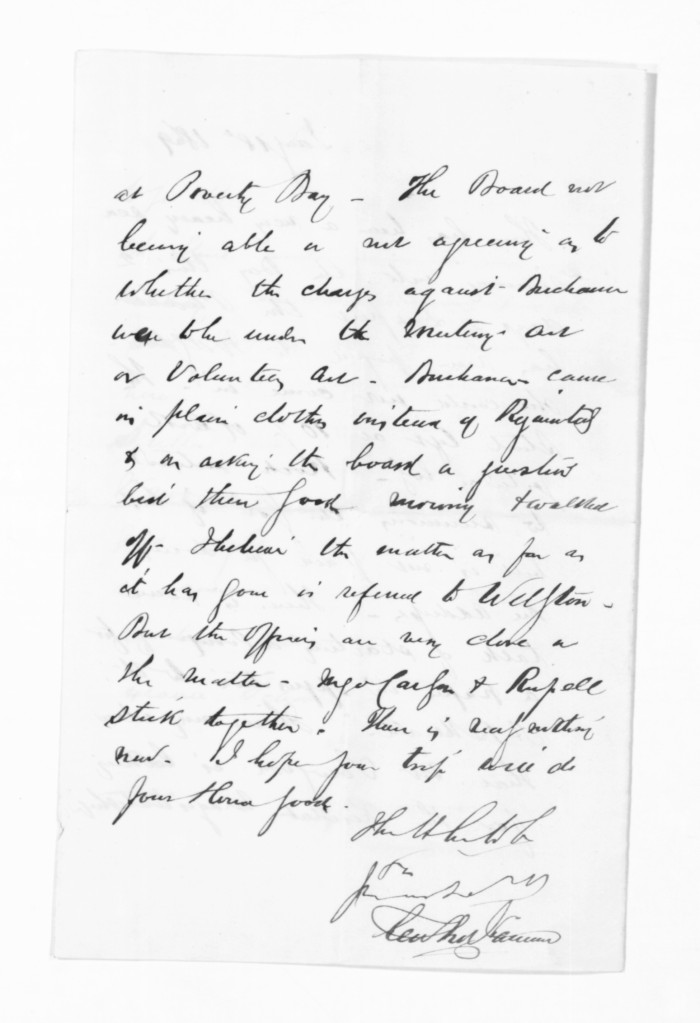 at Poverty Bay - The Board not
being able or not agreeing as to
whether the charges against Buchanan
were to be under the Mutiny Act
or Volunteer Act - Buchanan came
in plain clothes instead of Regimentals
& on asking the board a question
bid them Good morning & walked
off - I believe the matter as far as
it has gone is referred to Welgton -
But the Officers are very close on
the matter - Carlyon & Russell
stick together. There is really nothing
new. I hope your trip will do
your Honor good.